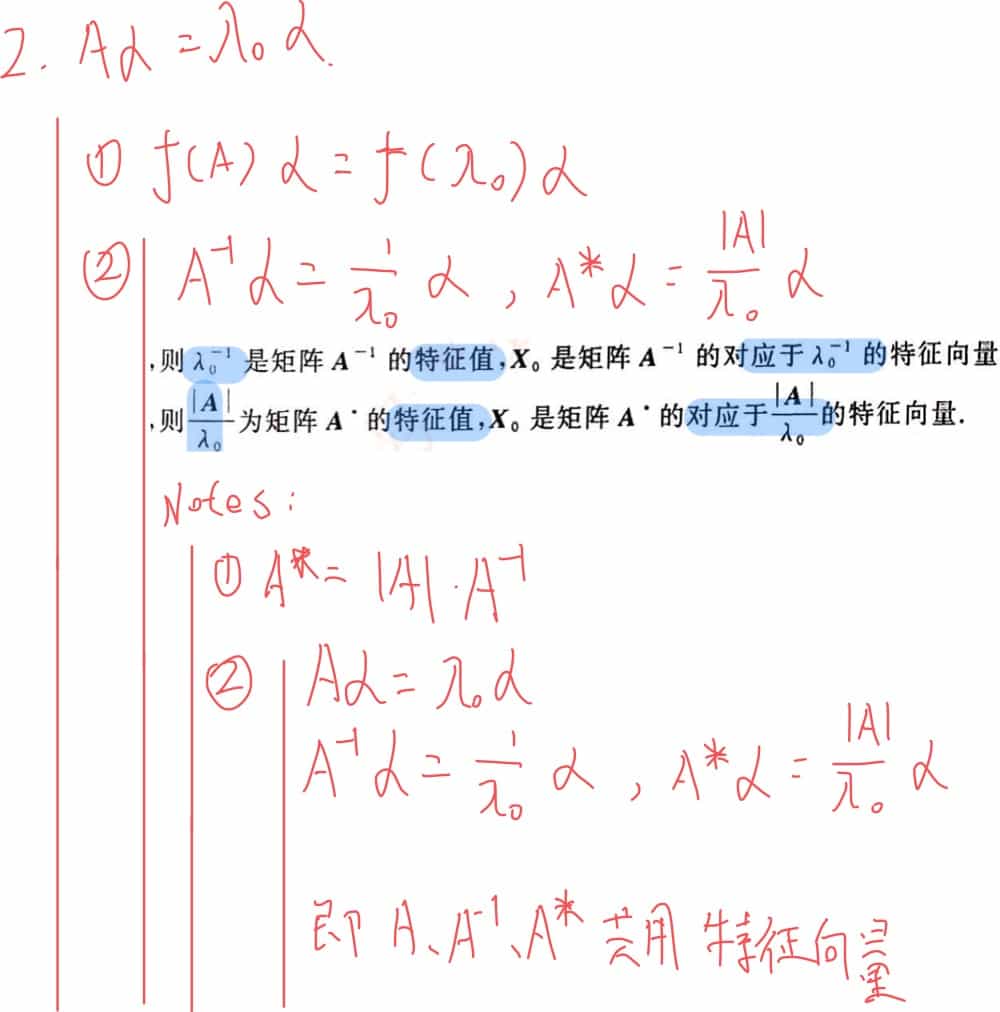 2. Aα = λ₀α.
① f(A)α = f(λ₀)α
② A⁻¹α = 1/λ₀ α , A*α = |A|/λ₀ α
,则 λ₀⁻¹ 是矩阵 A⁻¹ 的特征值,X₀ 是矩阵 A⁻¹ 的对应于 λ₀⁻¹ 的特征向量
,则 |A|/λ₀ 为矩阵 A* 的特征值,X₀ 是矩阵 A* 的对应于 |A|/λ₀ 的特征向量.
Notes:
① A* = |A|·A⁻¹
② Aα = λ₀α
A⁻¹α = 1/λ₀ α , A*α = |A|/λ₀ α
即 A、A⁻¹、A* 共用 特征向量